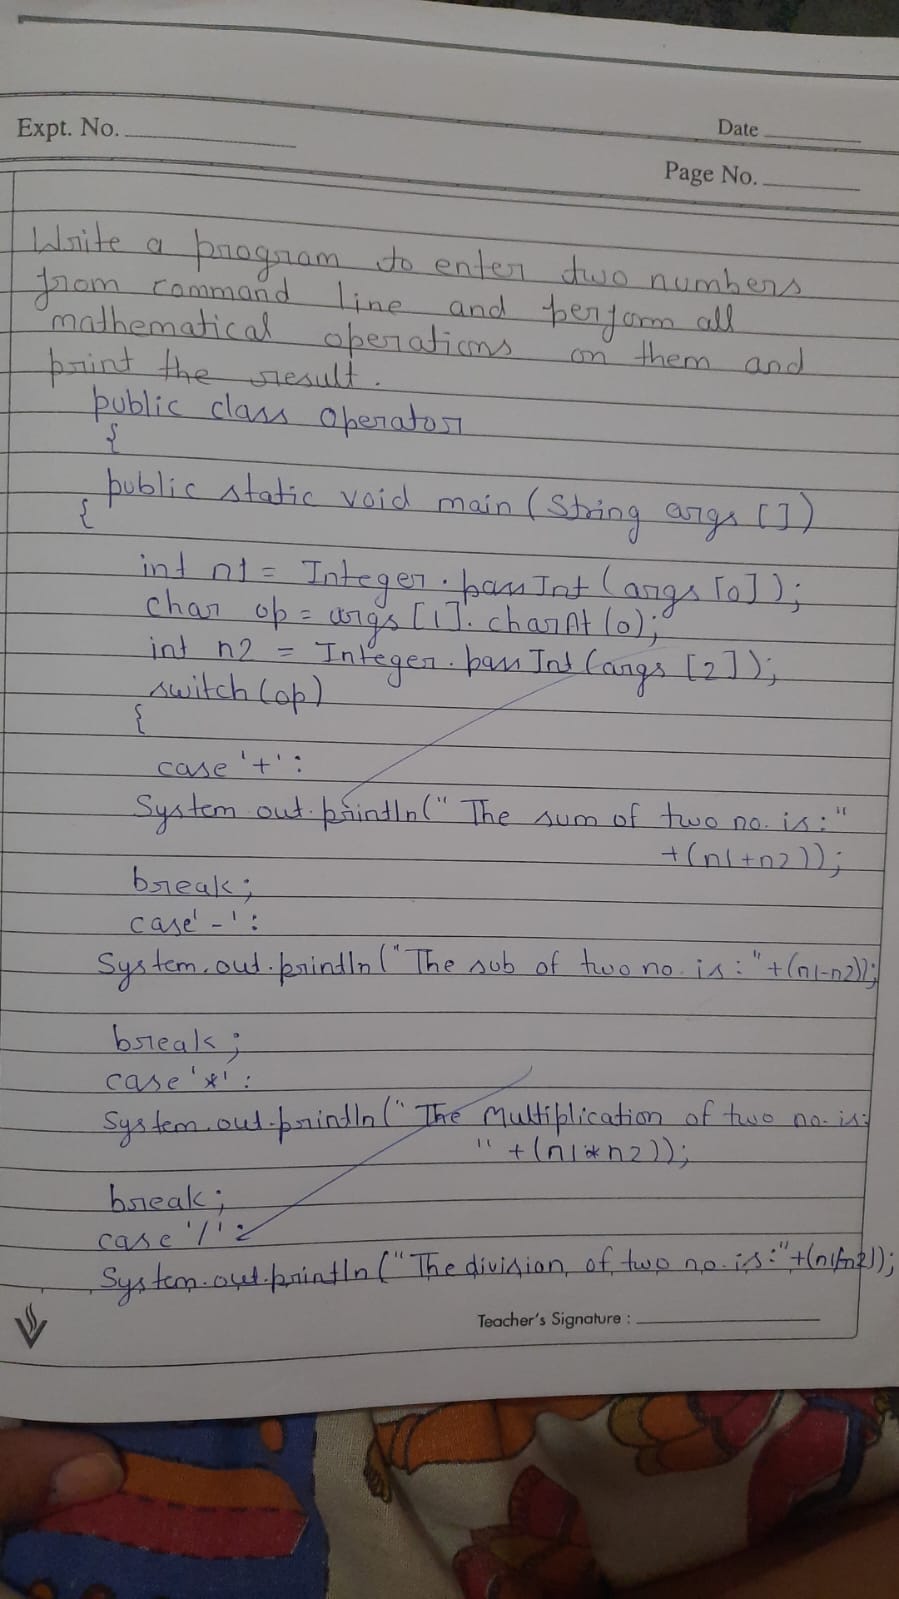 Expt. No.
Date
Page No.
Write a program to enter two numbers
from command line and perform all
mathematical operations on them and
print the result.
public class Operator
{
public static void main (String args [])
{
int n1 = Integer.parseInt (args [0]);
char op = args [1]. charAt (0);
int n2 = Integer.parseInt (args [2]);
switch (op)
{
case '+' :
System.out.println(" The sum of two no. is : "
+ (n1+n2));
break;
case '-' :
System.out.println(" The sub of two no. is : " + (n1-n2));
break;
case '*' :
System.out.println(" The Multiplication of two no. is:
" + (n1*n2));
break;
case '/' :
System.out.println(" The division of two no. is : " + (n1/n2));
Teacher's Signature :